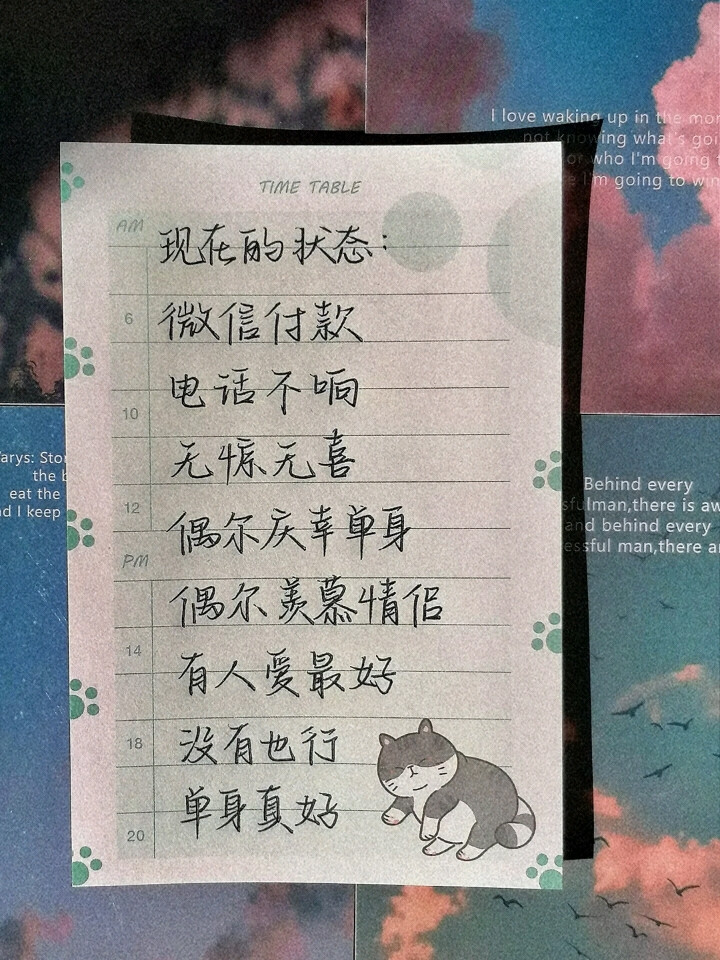 I love waking up in the
not knowing what's
or who I'm going
I'm going to win
TIME TABLE
AM
现在的状态：
6
微信付款
电话不响
10
无惊无喜
12
偶尔庆幸单身
PM
偶尔羡慕情侣
14
有人爱最好
18
没有也行
单身真好
20
arys:
the
eat the
I keep
Behind every
man,there is
and behind every
man,there